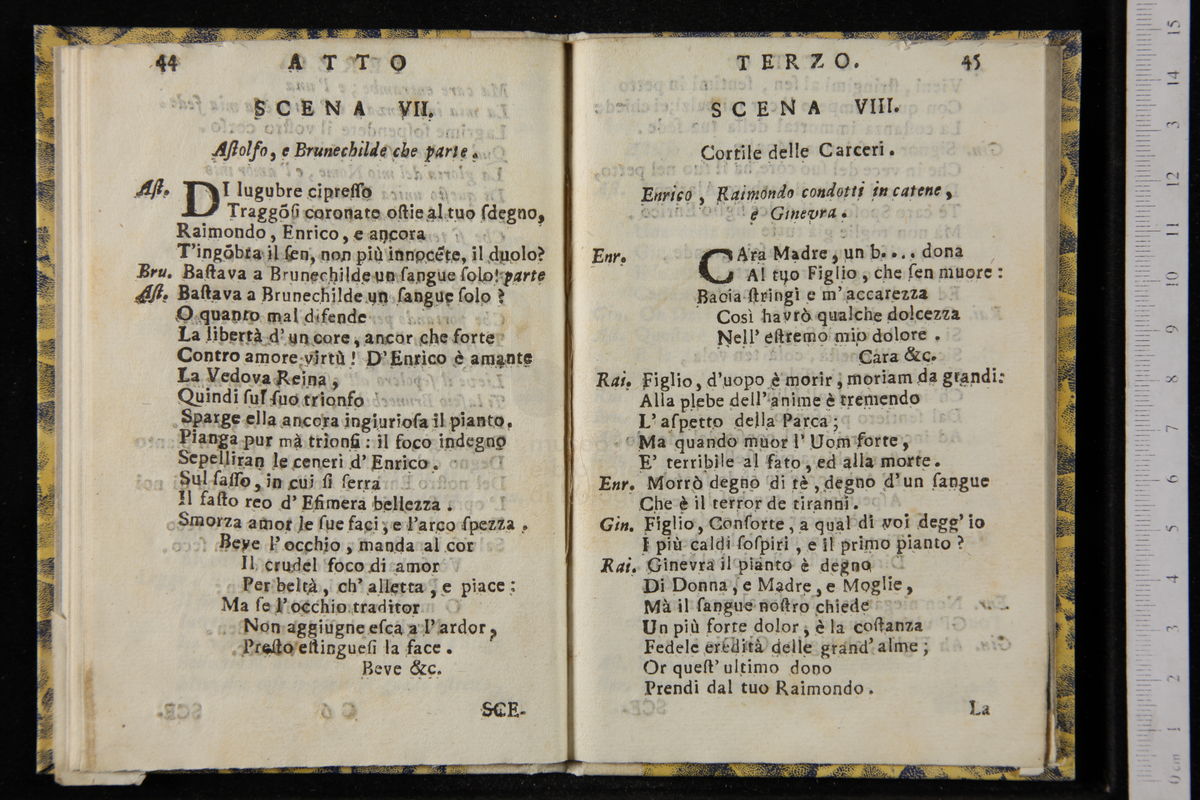 44 ATTO
SCENA VII.
Aſtolfo, e Brunechilde che parte.
Aſt. DI lugubre cipreſſo
Traggõſi coronate oſtie al tuo ſdegno,
Raimondo, Enrico, e ancora
T'ingõbra il ſen, non più innocẽte, il duolo?
Bru. Baſtava a Brunechilde un ſangue ſolo! parte
Aſt. Baſtava a Brunechilde un ſangue ſolo?
O quanto mal difende
La libertà d'un core, ancor che forte
Contro amore virtù! D'Enrico è amante
La Vedova Reina,
Quindi ſul ſuo trionfo
Sparge ella ancora ingiurioſa il pianto.
Pianga pur mà trionfi: il foco indegno
Sepelliran le ceneri d'Enrico.
Sul ſaſſo, in cui ſi ſerra
Il faſto reo d'Efimera bellezza.
Smorza amor le ſue faci, e l'arco ſpezza.
Beve l'occhio, manda al cor
Il crudel foco di amor
Per beltà, ch'alletta, e piace:
Ma ſe l'occhio traditor
Non aggiugne eſca a l'ardor,
Preſto eſtingueſi la face.
Beve &c.
SCE-
TERZO. 45
SCENA VIII.
Cortile delle Carceri.
Enrico, Raimondo condotti in catene,
e Ginevra.
Enr. CAra Madre, un b.... dona
Al tuo Figlio, che ſen muore:
Bacia ſtringi e m'accarezza
Così havrò qualche dolcezza
Nell'eſtremo mio dolore.
Cara &c.
Rai. Figlio, d'uopo è morir, moriam da grandi:
Alla plebe dell'anime è tremendo
L'aſpetto della Parca;
Ma quando muor l'Uom forte,
E' terribile al fato, ed alla morte.
Enr. Morrò degno di tè, degno d'un ſangue
Che è il terror de tiranni.
Gin. Figlio, Conſorte, a qual di voi degg'io
I più caldi ſoſpiri, e il primo pianto?
Rai. Ginevra il pianto è degno
Di Donna, e Madre, e Moglie,
Mà il ſangue noſtro chiede
Un più forte dolor, è la coſtanza
Fedele eredità delle grand'alme;
Or queſt'ultimo dono
Prendi dal tuo Raimondo.
La